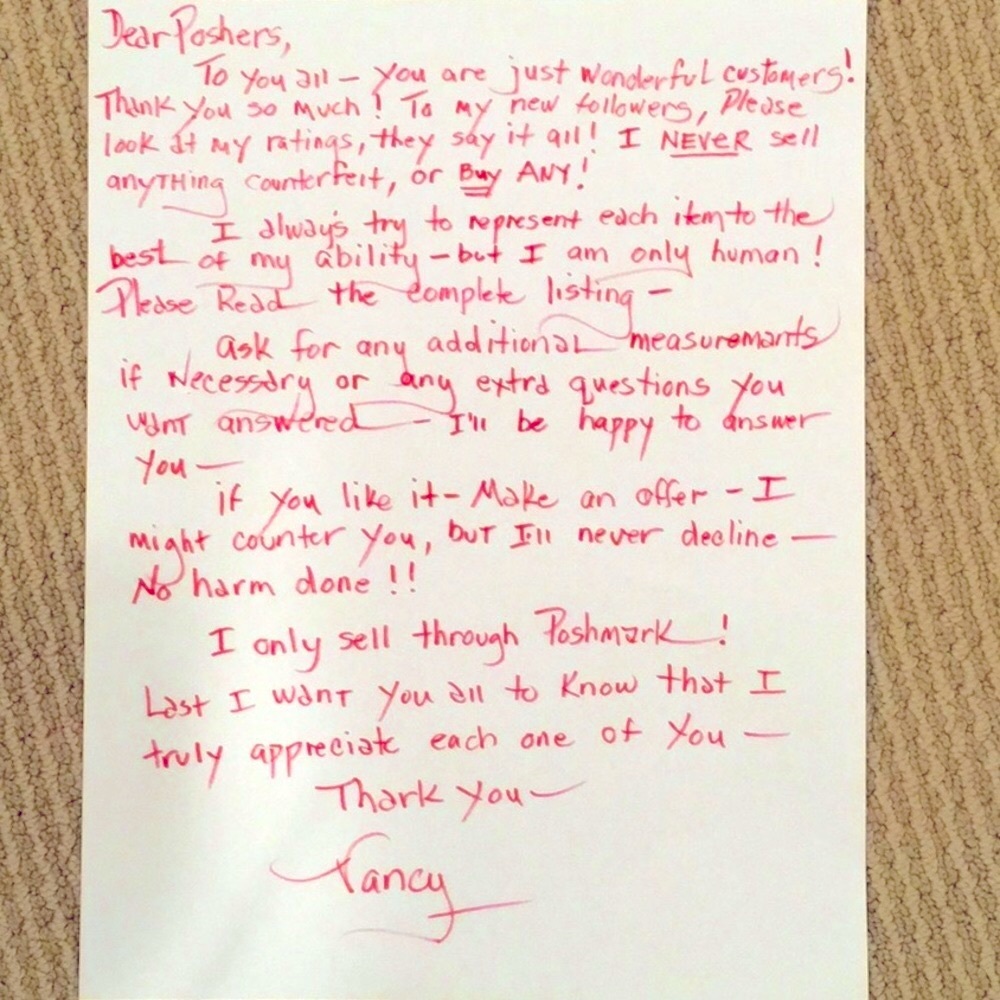 Dear Poshers,
To you all – you are just wonderful customers!
Thank you so much! To my new followers, Please
look at my ratings, they say it all! I NEVER sell
anyTHing counterfeit, or Buy ANY!
I always try to represent each item to the
best of my ability – but I am only human!
Please Read the complete listing –
ask for any additional measurements
if Necessary or any extra questions you
want answered – I'll be happy to answer
you –
if you like it – Make an offer – I
might counter you, but I'll never decline –
No harm done!!
I only sell through Poshmark!
Last I want you all to Know that I
truly appreciate each one of you –
Thank you –
Nancy